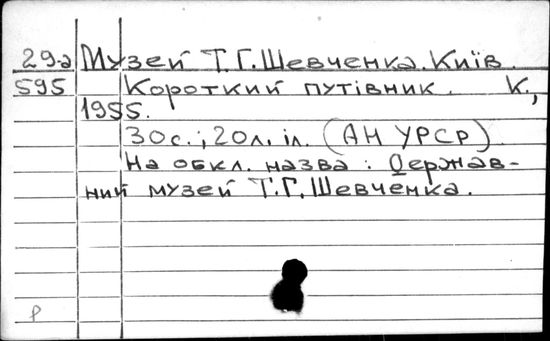 29-а Музей Т.Г.Шевченка. Київ.
595 Короткий путівник. К.,
1955.
30с.; 20л. іл. (АН УРСР)
На обкл. назва: Держав-
ний музей Т.Г.Шевченка.